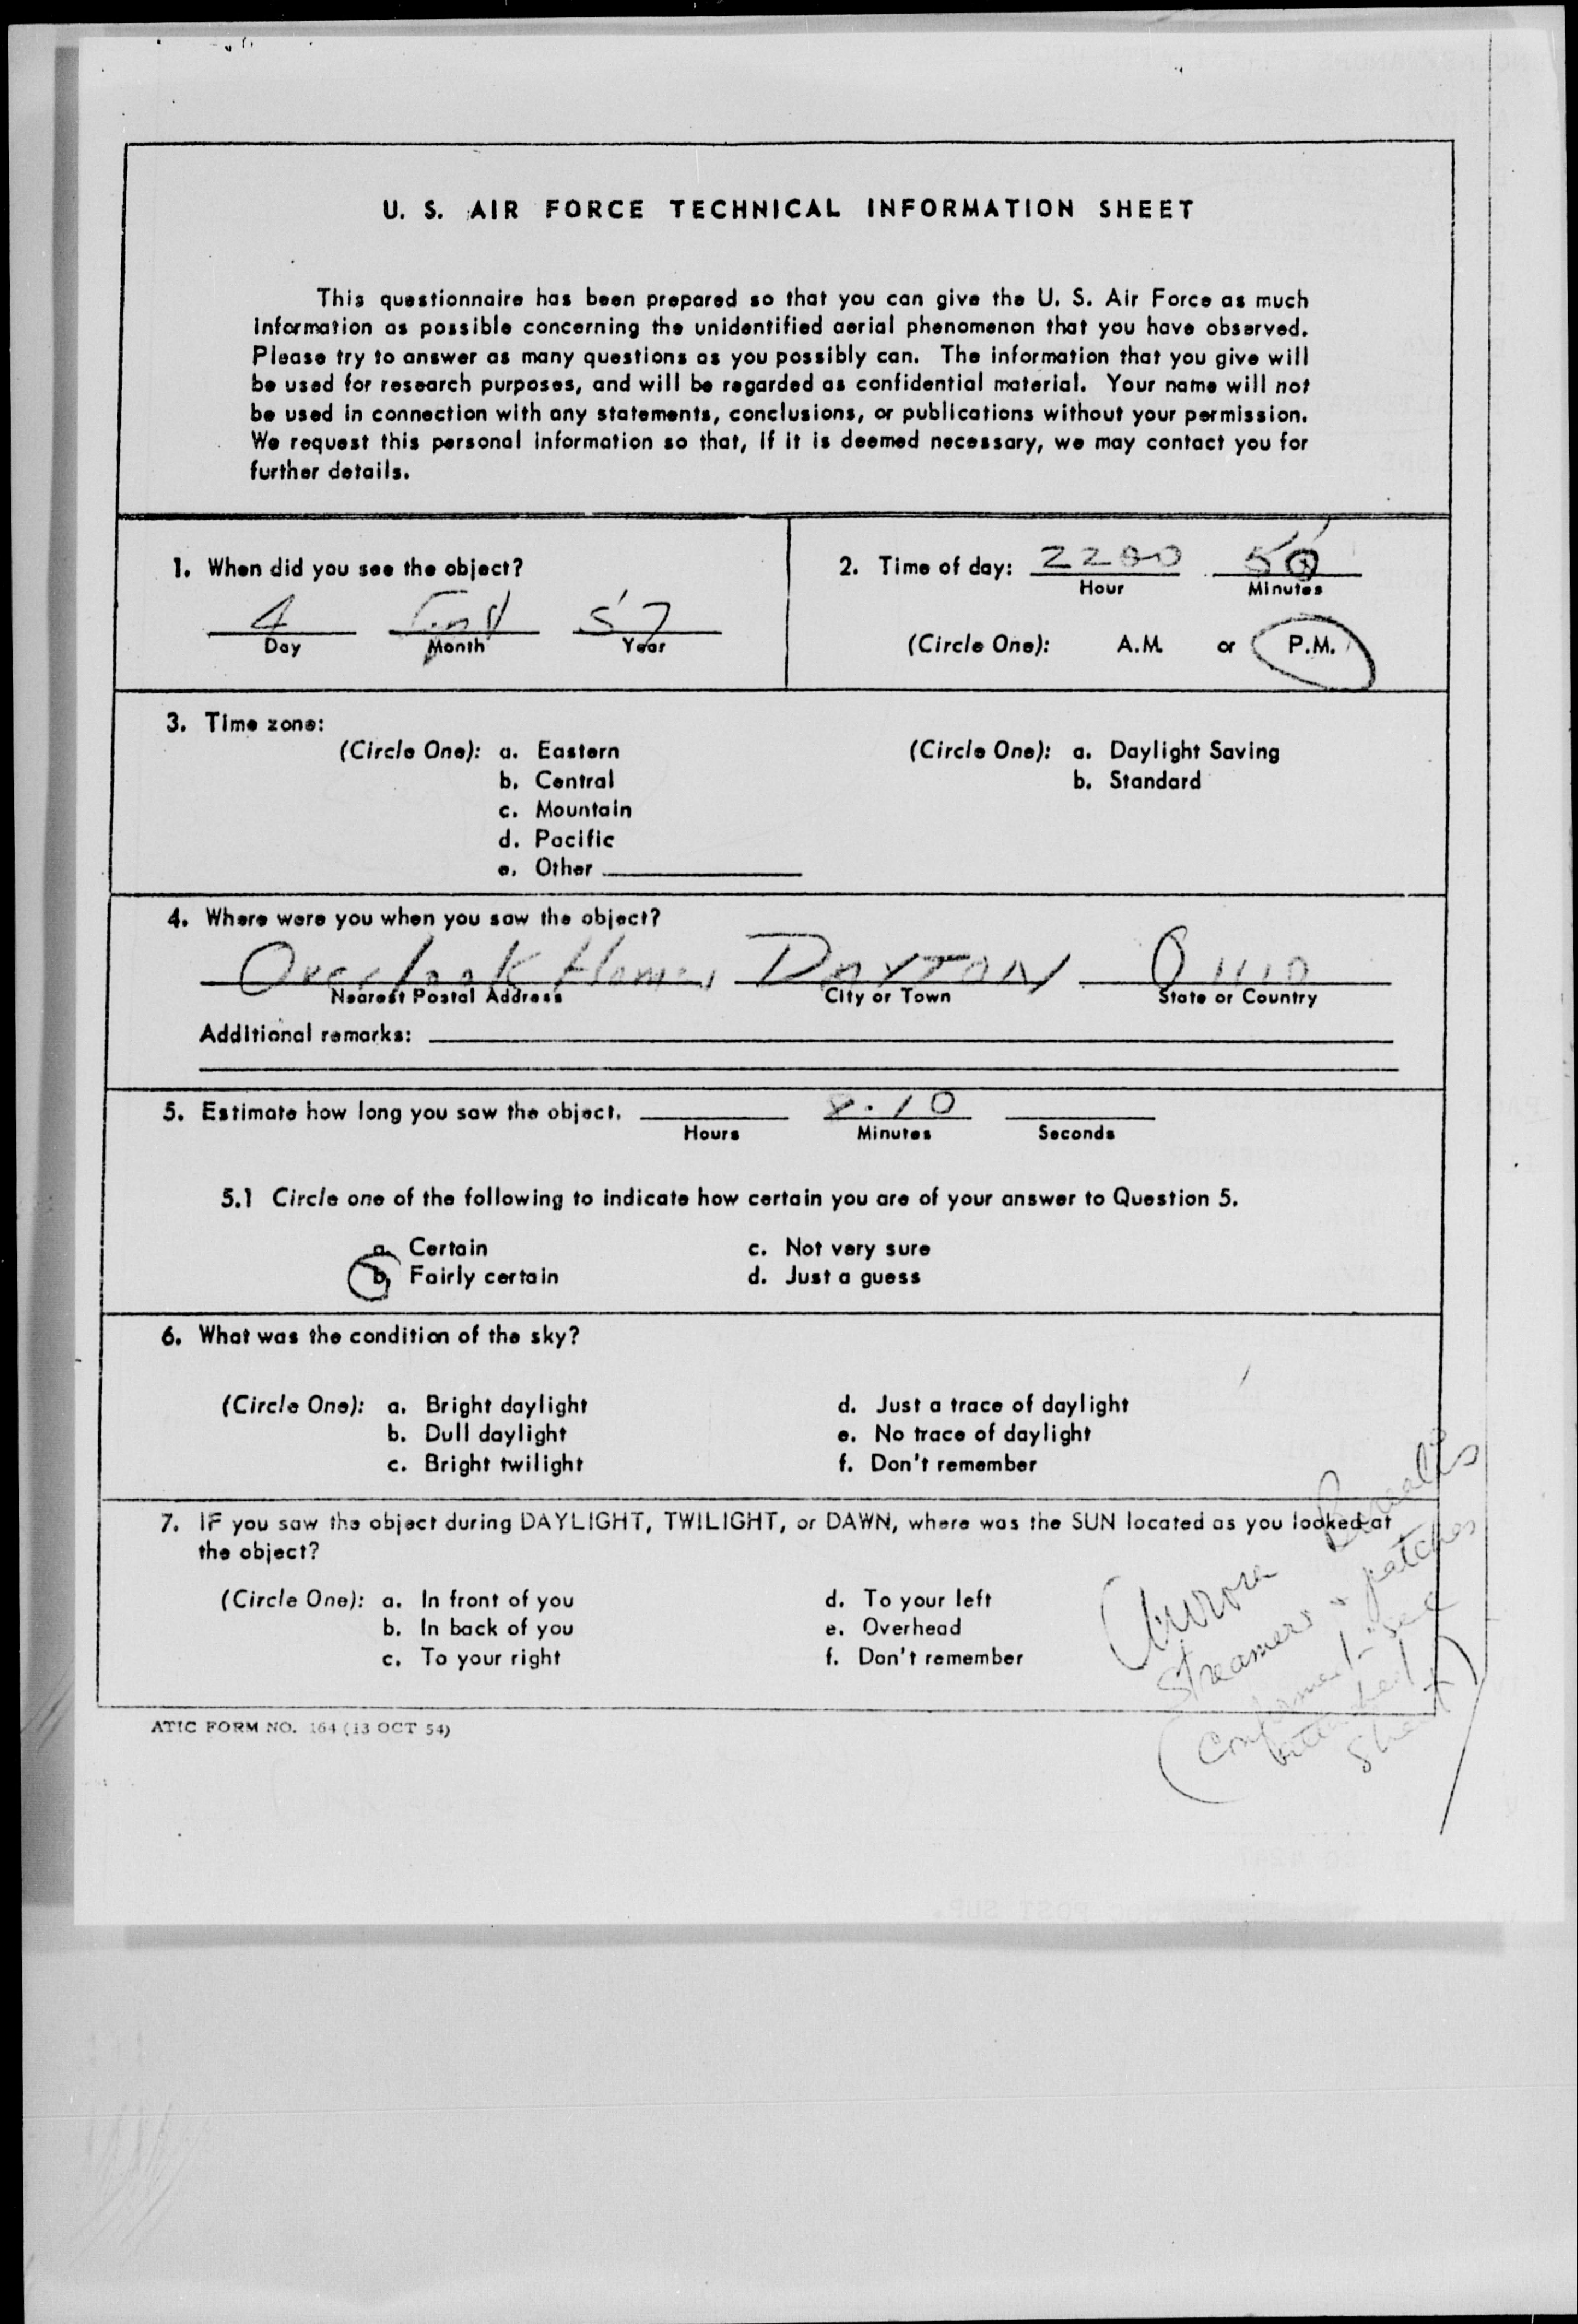 U. S. AIR FORCE TECHNICAL INFORMATION SHEET
This questionnaire has been prepared so that you can give the U. S. Air Force as much
information as possible concerning the unidentified aerial phenomenon that you have observed.
Please try to answer as many questions as you possibly can. The information that you give will
be used for research purposes, and will be regarded as confidential material. Your name will not
be used in connection with any statements, conclusions, or publications without your permission.
We request this personal information so that, if it is deemed necessary, we may contact you for
further details.
1. When did you see the object?
4 57
Day Month Year
2. Time of day: 2200 50
Hour Minutes
(Circle One): A.M. or P.M.
3. Time zone:
(Circle One): a. Eastern
b. Central
c. Mountain
d. Pacific
e. Other
(Circle One): a. Daylight Saving
b. Standard
4. Where were you when you saw the object?
Overlook Homes DAYTON OHIO
Nearest Postal Address City or Town State or Country
Additional remarks:
5. Estimate how long you saw the object. 8-10
Hours Minutes Seconds
5.1 Circle one of the following to indicate how certain you are of your answer to Question 5.
a. Certain c. Not very sure
b. Fairly certain d. Just a guess
6. What was the condition of the sky?
(Circle One): a. Bright daylight d. Just a trace of daylight
b. Dull daylight e. No trace of daylight
c. Bright twilight f. Don't remember
7. IF you saw the object during DAYLIGHT, TWILIGHT, or DAWN, where was the SUN located as you looked at
the object?
(Circle One): a. In front of you d. To your left
b. In back of you e. Overhead
c. To your right f. Don't remember
Aurora Borealis
Streamers & patches
(Confirmed - see
attached
Sheet)
ATIC FORM NO. 164 (13 OCT 54)